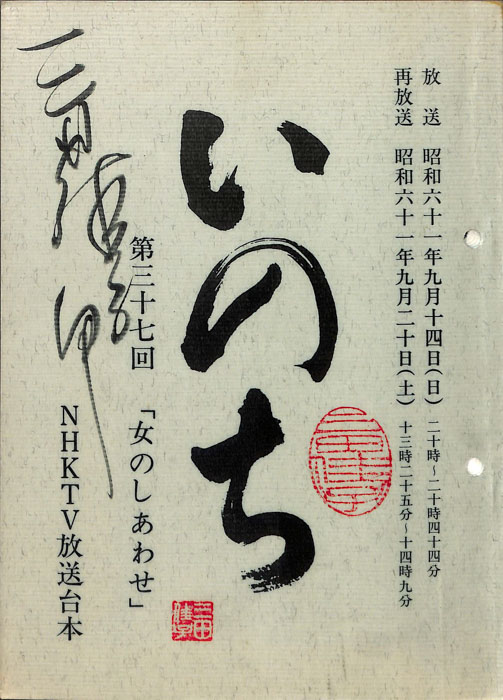 放送 昭和六十一年九月十四日(日) 二十時~二十時四十四分
再放送 昭和六十一年九月二十日(土) 十三時二十五分~十四時九分
いのち
第三十七回 「女のしあわせ」
NHKTV放送台本
三田佳子